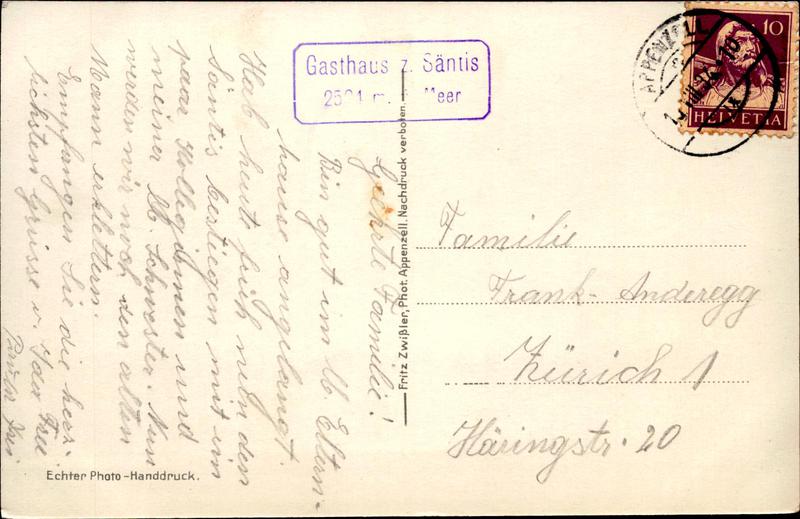 Gasthaus z. Säntis
2504 m. ü. Meer
APPENZELL
10
HELVETIA
Geehrte Familie!
Bin gut im lb Eltern-
hause angelangt.
Hab heute früh nun den
Säntis bestiegen mit ein
paar Kolleginnen und
meiner lb. Schwester. Nun
werden wir noch den alten
Mann erklettern.
Empfangen Sie die herz-
lichsten Grüsse v. Ida Frei
Frei
Fritz Zwißler, Phot. Appenzell. Nachdruck verboten.
Familie
Frank-Anderegg
Zürich 1
Häringstr. 20
Echter Photo-Handdruck.